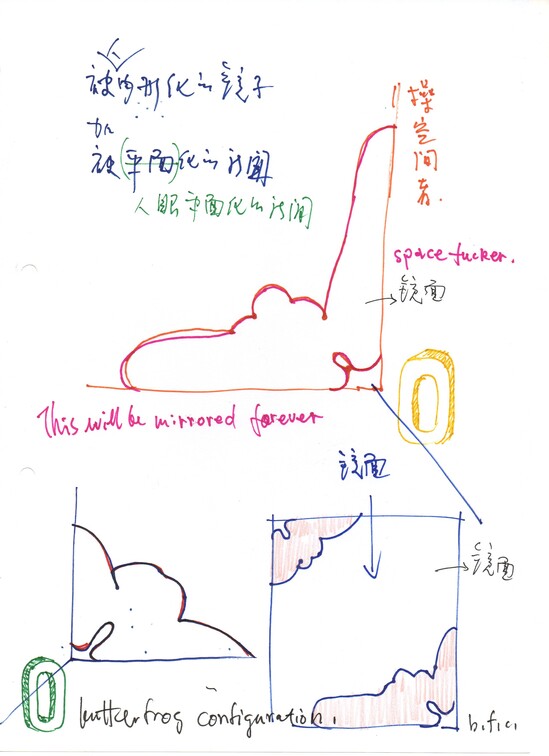 化的镜子
加
被(平面)化的
人眼平面化的
操空间者.
space fucker.
镜面
This will be mirrored forever
镜面
镜面
butterfrog configuration.
b.f.c.